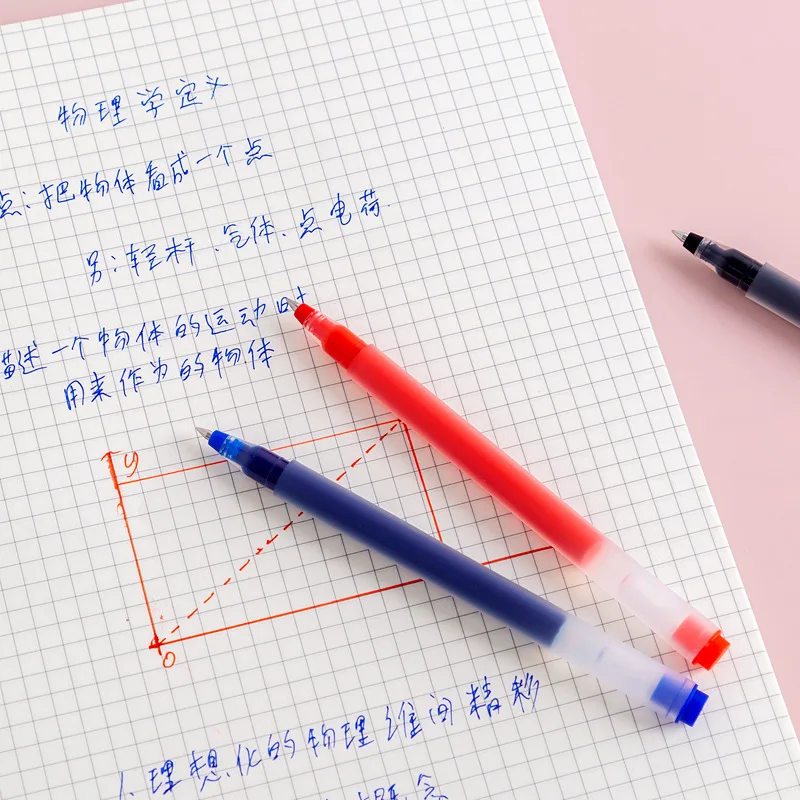 物理学定义
点：把物体看成一个点
另：轻杆、气体、点电荷.
描述一个物体的运动时
用来作为的物体
y
0
理想化的物理维间精秒
念